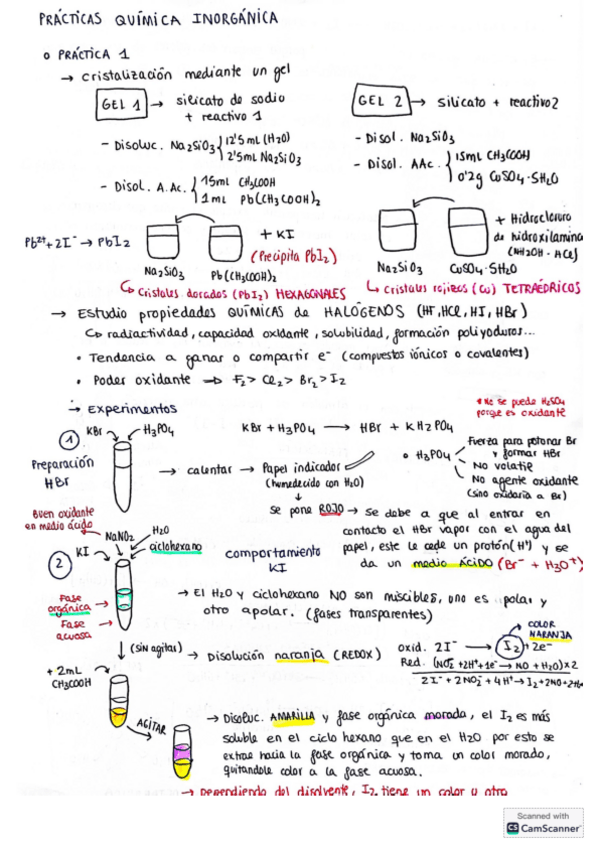 PRÁCTICAS QUÍMICA INORGÁNICA
o PRÁCTICA 1
→ cristalización mediante un gel
GEL 1 → silicato de sodio
+ reactivo 1
- Disoluc. Na2SiO3 { 12'5 mL (H2O)
2'5 mL Na2SiO3
- Disol. A.Ac. { 15ml CH3COOH
1 mL Pb(CH3COOH)2
GEL 2 → silicato + reactivo 2
- Disol. Na2SiO3
- Disol. AAc. { 15ml CH3COOH
0'2g CuSO4·5H2O
Pb2+ + 2I- → PbI2
+ KI
(Precipita PbI2)
Na2SiO3 Pb(CH3COOH)2
↳ Cristales dorados (PbI2) HEXAGONALES
+ Hidrocloruro
de hidroxilamina
(NH2OH · HCl)
Na2SiO3 CuSO4·5H2O
↳ Cristales rojizos (Cu) TETRAÉDRICOS
→ Estudio propiedades QUÍMICAS de HALÓGENOS (HF, HCl, HI, HBr)
↳ radiactividad, capacidad oxidante, solubilidad, formación poliyoduros...
• Tendencia a ganar o compartir e- (compuestos iónicos o covalentes)
• Poder oxidante → F2 > Cl2 > Br2 > I2
→ Experimentos
* No se puede H2SO4
porque es oxidante
1
KBr H3PO4
Preparación
HBr
KBr + H3PO4 → HBr + KH2PO4
→ calentar → Papel indicador
(humedecido con H2O)
↓
se pone ROJO → Se debe a que al entrar en
contacto el HBr vapor con el agua del
papel, este le cede un protón (H+) y se
da un medio ÁCIDO (Br- + H3O+)
• H3PO4
Fuerza para protonar Br
y formar HBr
No volatil
No agente oxidante
(sino oxidaría a Br)
Buen oxidante
en medio ácido
NaNO2
H2O
2
KI
ciclohexano
comportamiento
KI
Fase
orgánica →
Fase
acuosa
→ El H2O y ciclohexano NO son miscibles, uno es polar y
otro apolar. (fases transparentes)
(sin agitar) → Disolución naranja (REDOX)
COLOR
NARANJA
Oxid. 2I- → I2 + 2e-
Red. (NO2- + 2H+ + 1e- → NO + H2O) x 2
2I- + 2NO2- + 4H+ → I2 + 2NO + 2H2O
+ 2mL
CH3COOH
AGITAR
→ Disoluc. AMARILLA y fase orgánica morada, el I2 es más
soluble en el ciclo hexano que en el H2O por esto se
extrae hacia la fase orgánica y toma un color morado,
quitandole color a la fase acuosa.
→ Dependiendo del disolvente, I2 tiene un color u otro
Scanned with
CS CamScanner